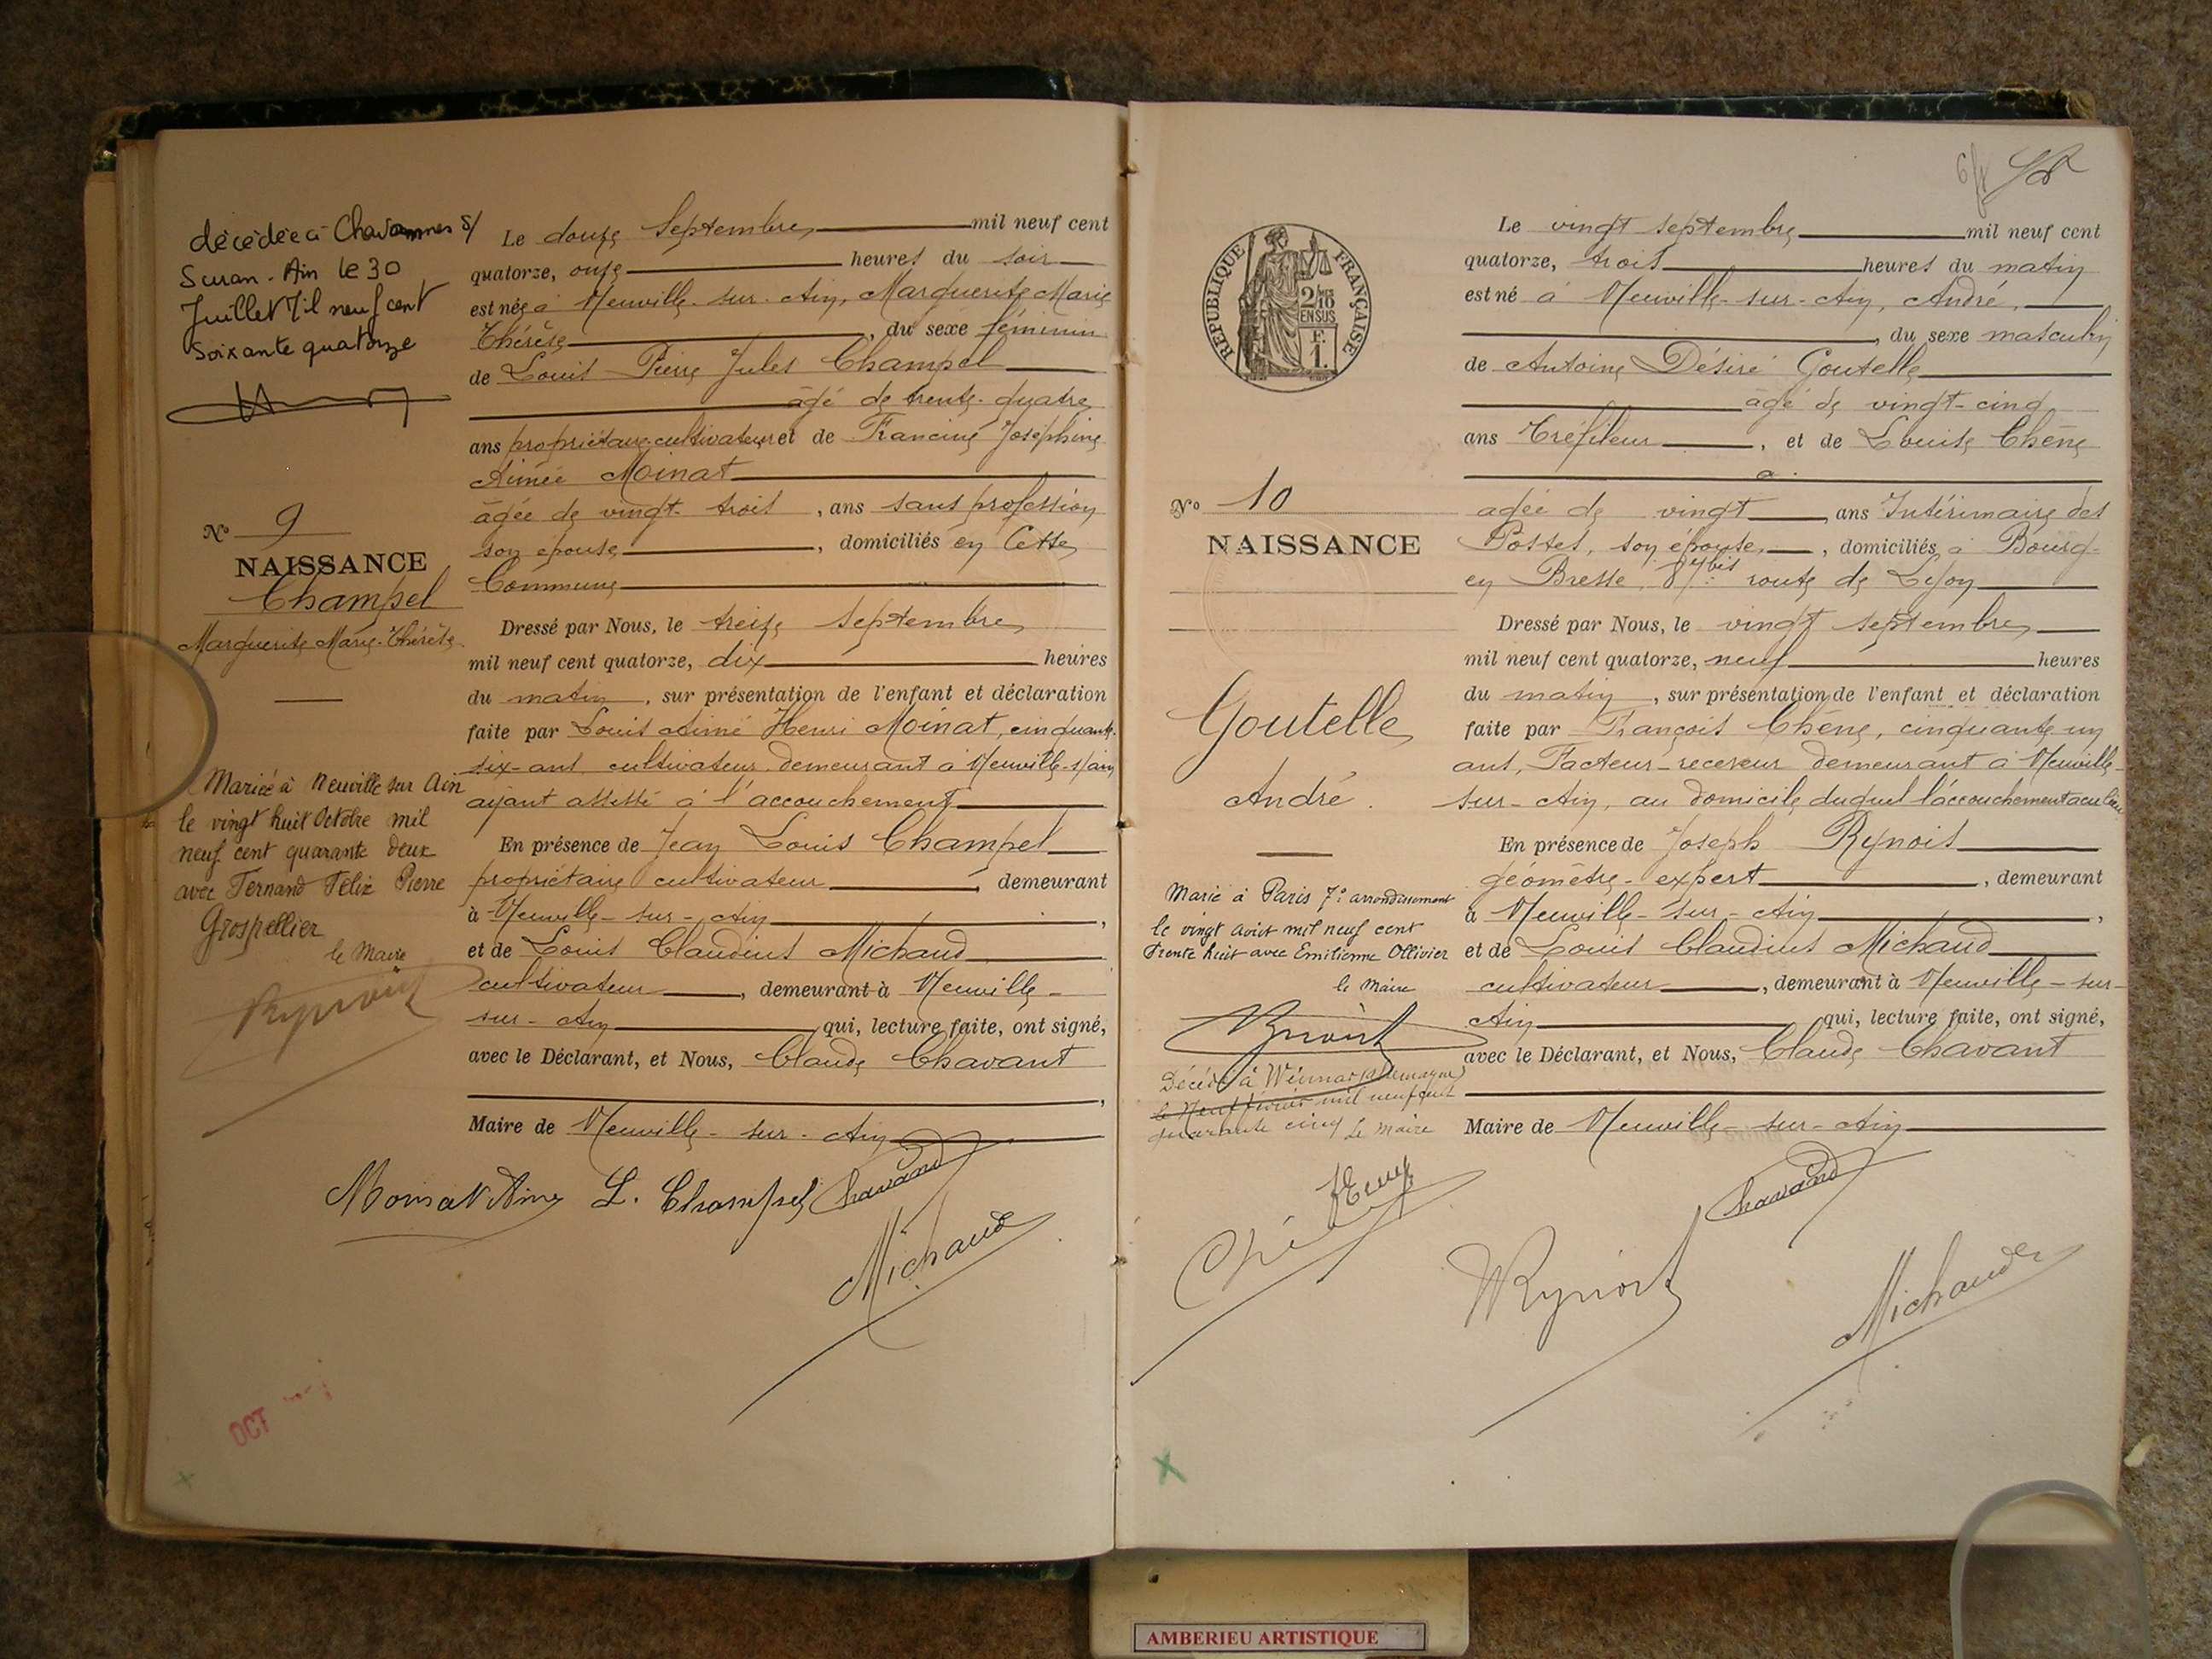 décédée à Chavannes s/
Suran - Ain le 30
Juillet Mil neuf cent
Soixante quatorze
N° 9
NAISSANCE
Champel
Marguerite Marie-Thérèse
Mariée à Neuville sur Ain
le vingt huit Octobre mil
neuf cent quarante deux
avec Fernand Félix Pierre
Grospellier
le Maire
Le douze Septembre mil neuf cent
quatorze, onze heures du soir
est née à Neuville-sur-Ain, Marguerite Marie
Thérèse, du sexe féminin
de Louis Pierre Jules Champel
âgé de trente-quatre
ans propriétaire cultivateur et de Francine Joséphine
Aimée Moinat
âgée de vingt-trois, ans sans profession
son épouse, domiciliés en Cette
Commune
Dressé par Nous, le treize Septembre
mil neuf cent quatorze, dix heures
du matin, sur présentation de l'enfant et déclaration
faite par Louis Aimé Henri Moinat, cinquante-
six-ans cultivateur demeurant à Neuville-s/ain
ayant assisté à l'accouchement
En présence de Jean Louis Champel
propriétaire cultivateur, demeurant
à Neuville-sur-Ain,
et de Louis Claudius Michaud
cultivateur, demeurant à Neuville-
sur-Ain qui, lecture faite, ont signé,
avec le Déclarant, et Nous, Claude Chavant
Maire de Neuville-sur-Ain
Moinat Aimé L. Champel Chavand
Michaud
OCT
REPUBLIQUE FRANÇAISE
2/10
EN SUS
F.
1.
N° 10
NAISSANCE
Goutelle
André.
Marié à Paris 7e arrondissement
le vingt août mil neuf cent
trente huit avec Emilienne Ollivier
le Maire
Décédé à Weimar (Allemagne)
le Neuf février mil neuf cent
quarante cinq Le Maire
Le vingt septembre mil neuf cent
quatorze, trois heures du matin
est né à Neuville-sur-Ain, André,
, du sexe masculin
de Antoine Désiré Goutelle
âgé de vingt-cinq
ans Tréfileur, et de Louise Chêne
âgée de vingt, ans Intérimaire des
Postes, son épouse, domiciliés à Bourg-
en Bresse, bis route de Lyon
Dressé par Nous, le vingt septembre
mil neuf cent quatorze, neuf heures
du matin, sur présentation de l'enfant et déclaration
faite par François Chêne, cinquante un
ans, Facteur-receveur demeurant à Neuville-
sur-Ain, au domicile duquel l'accouchement a eu lieu
En présence de Joseph Rynois
géomètre-expert, demeurant
à Neuville-sur-Ain,
et de Louis Claudius Michaud
cultivateur, demeurant à Neuville-sur-
Ain qui, lecture faite, ont signé,
avec le Déclarant, et Nous, Claude Chavant
Maire de Neuville-sur-Ain
Chavand
Michaud
AMBERIEU ARTISTIQUE